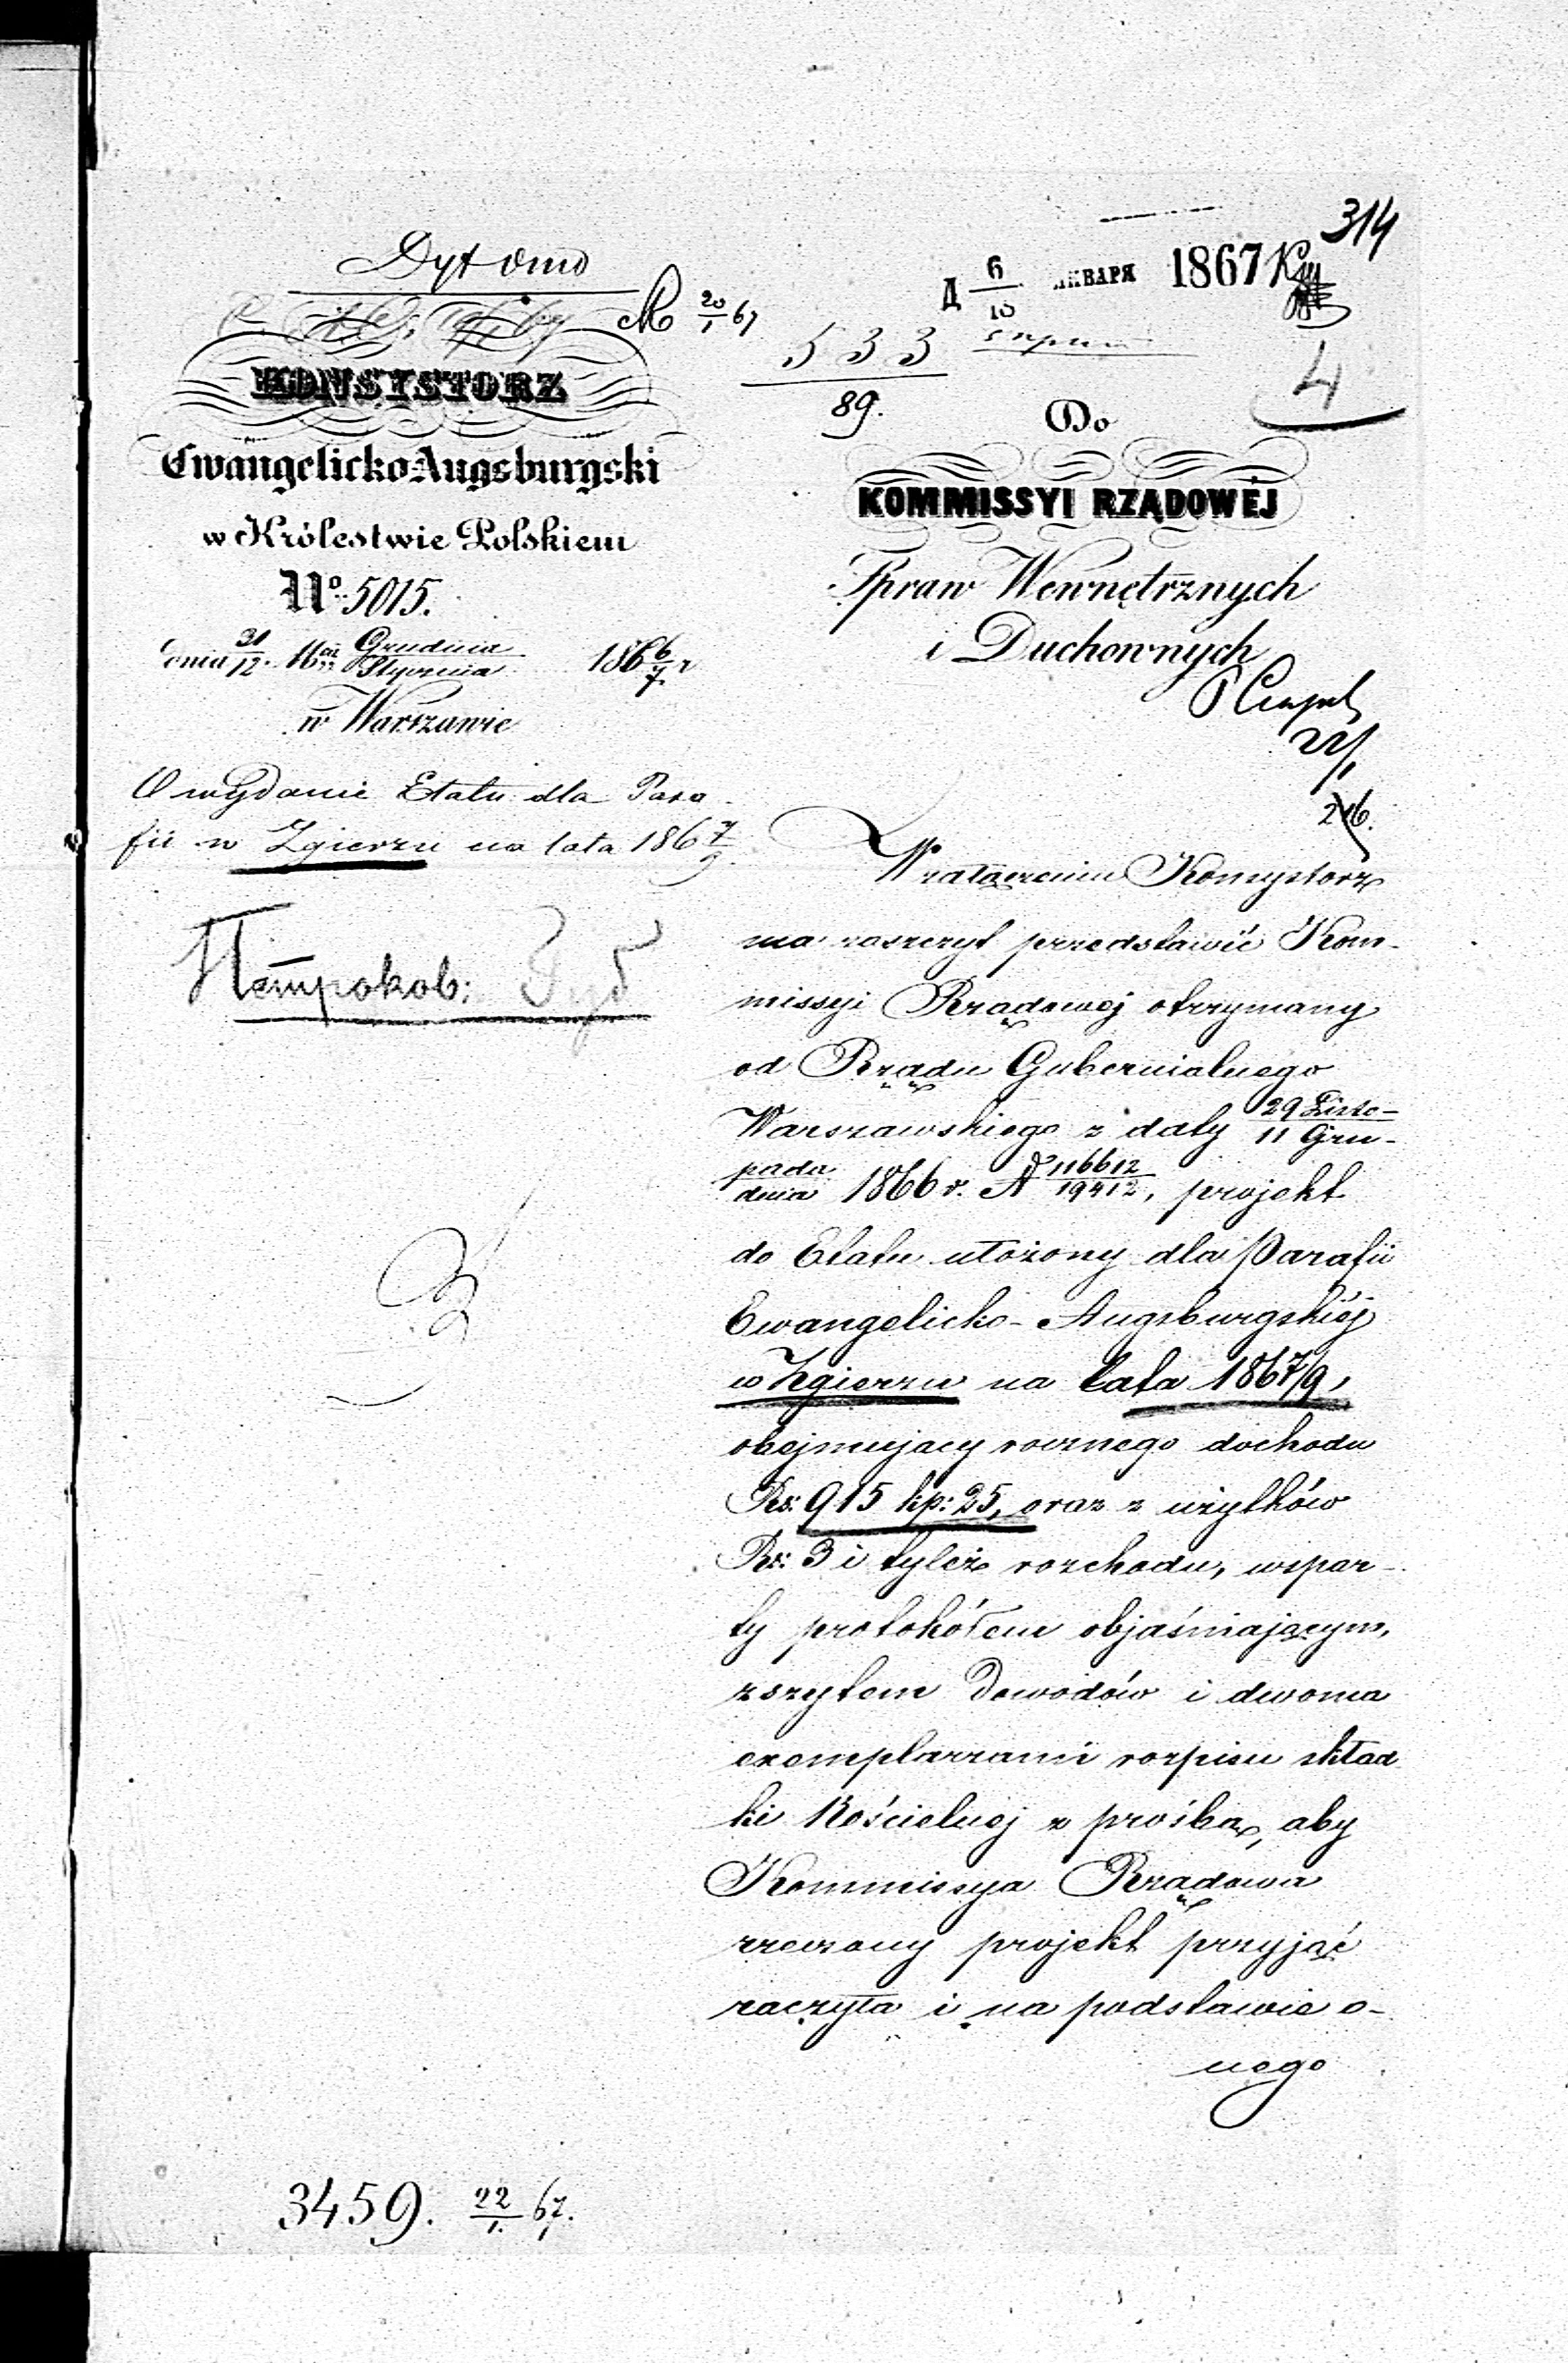 314
Д 6/18 ЯНВАРЯ 1867
M 20/1 67
533
89.
4
KONSYSTORZ
Ewangelicko-Augsburgski
w Królestwie Polskiem
No. 5015.
dnia 31/12 Grudnia/Stycznia 186 6/7 r
w Warszawie
O wydanie Etatu dla Para
fii w Zgierzu na lata 186 7/9.
Петроков: Губ
Do
KOMMISSYI RZĄDOWÉJ
Spraw Wewnętrznych
i Duchownych
W załączeniu Konsystorz
ma zaszczyt przedstawić Kom-
missyi Rządowej otrzymany
od Rządu Gubernialnego
Warszawskiego z daty 29 Listo-/11 Gru-
pada/dnia 1866 r. N 116612/19412, projekt
do Etatu ułożony dla Parafii
Ewangelicko-Augsburgskiéj
w Zgierzu na lata 1867/9,
obejmujący rocznego dochodu
Rs: 915 kp: 25, oraz z użytków
Rs: 3 i tyleż rozchodu, wspar-
ty protokółem objaśniającym,
zszytem Dowodów i dwoma
exemplarzami rozpisu skład
ki Kościelnej z prośbą, aby
Kommissya Rządowa
rzeczony projekt przyjąć
raczyła i na podstawie o-
nego
3459. 22/1. 67.